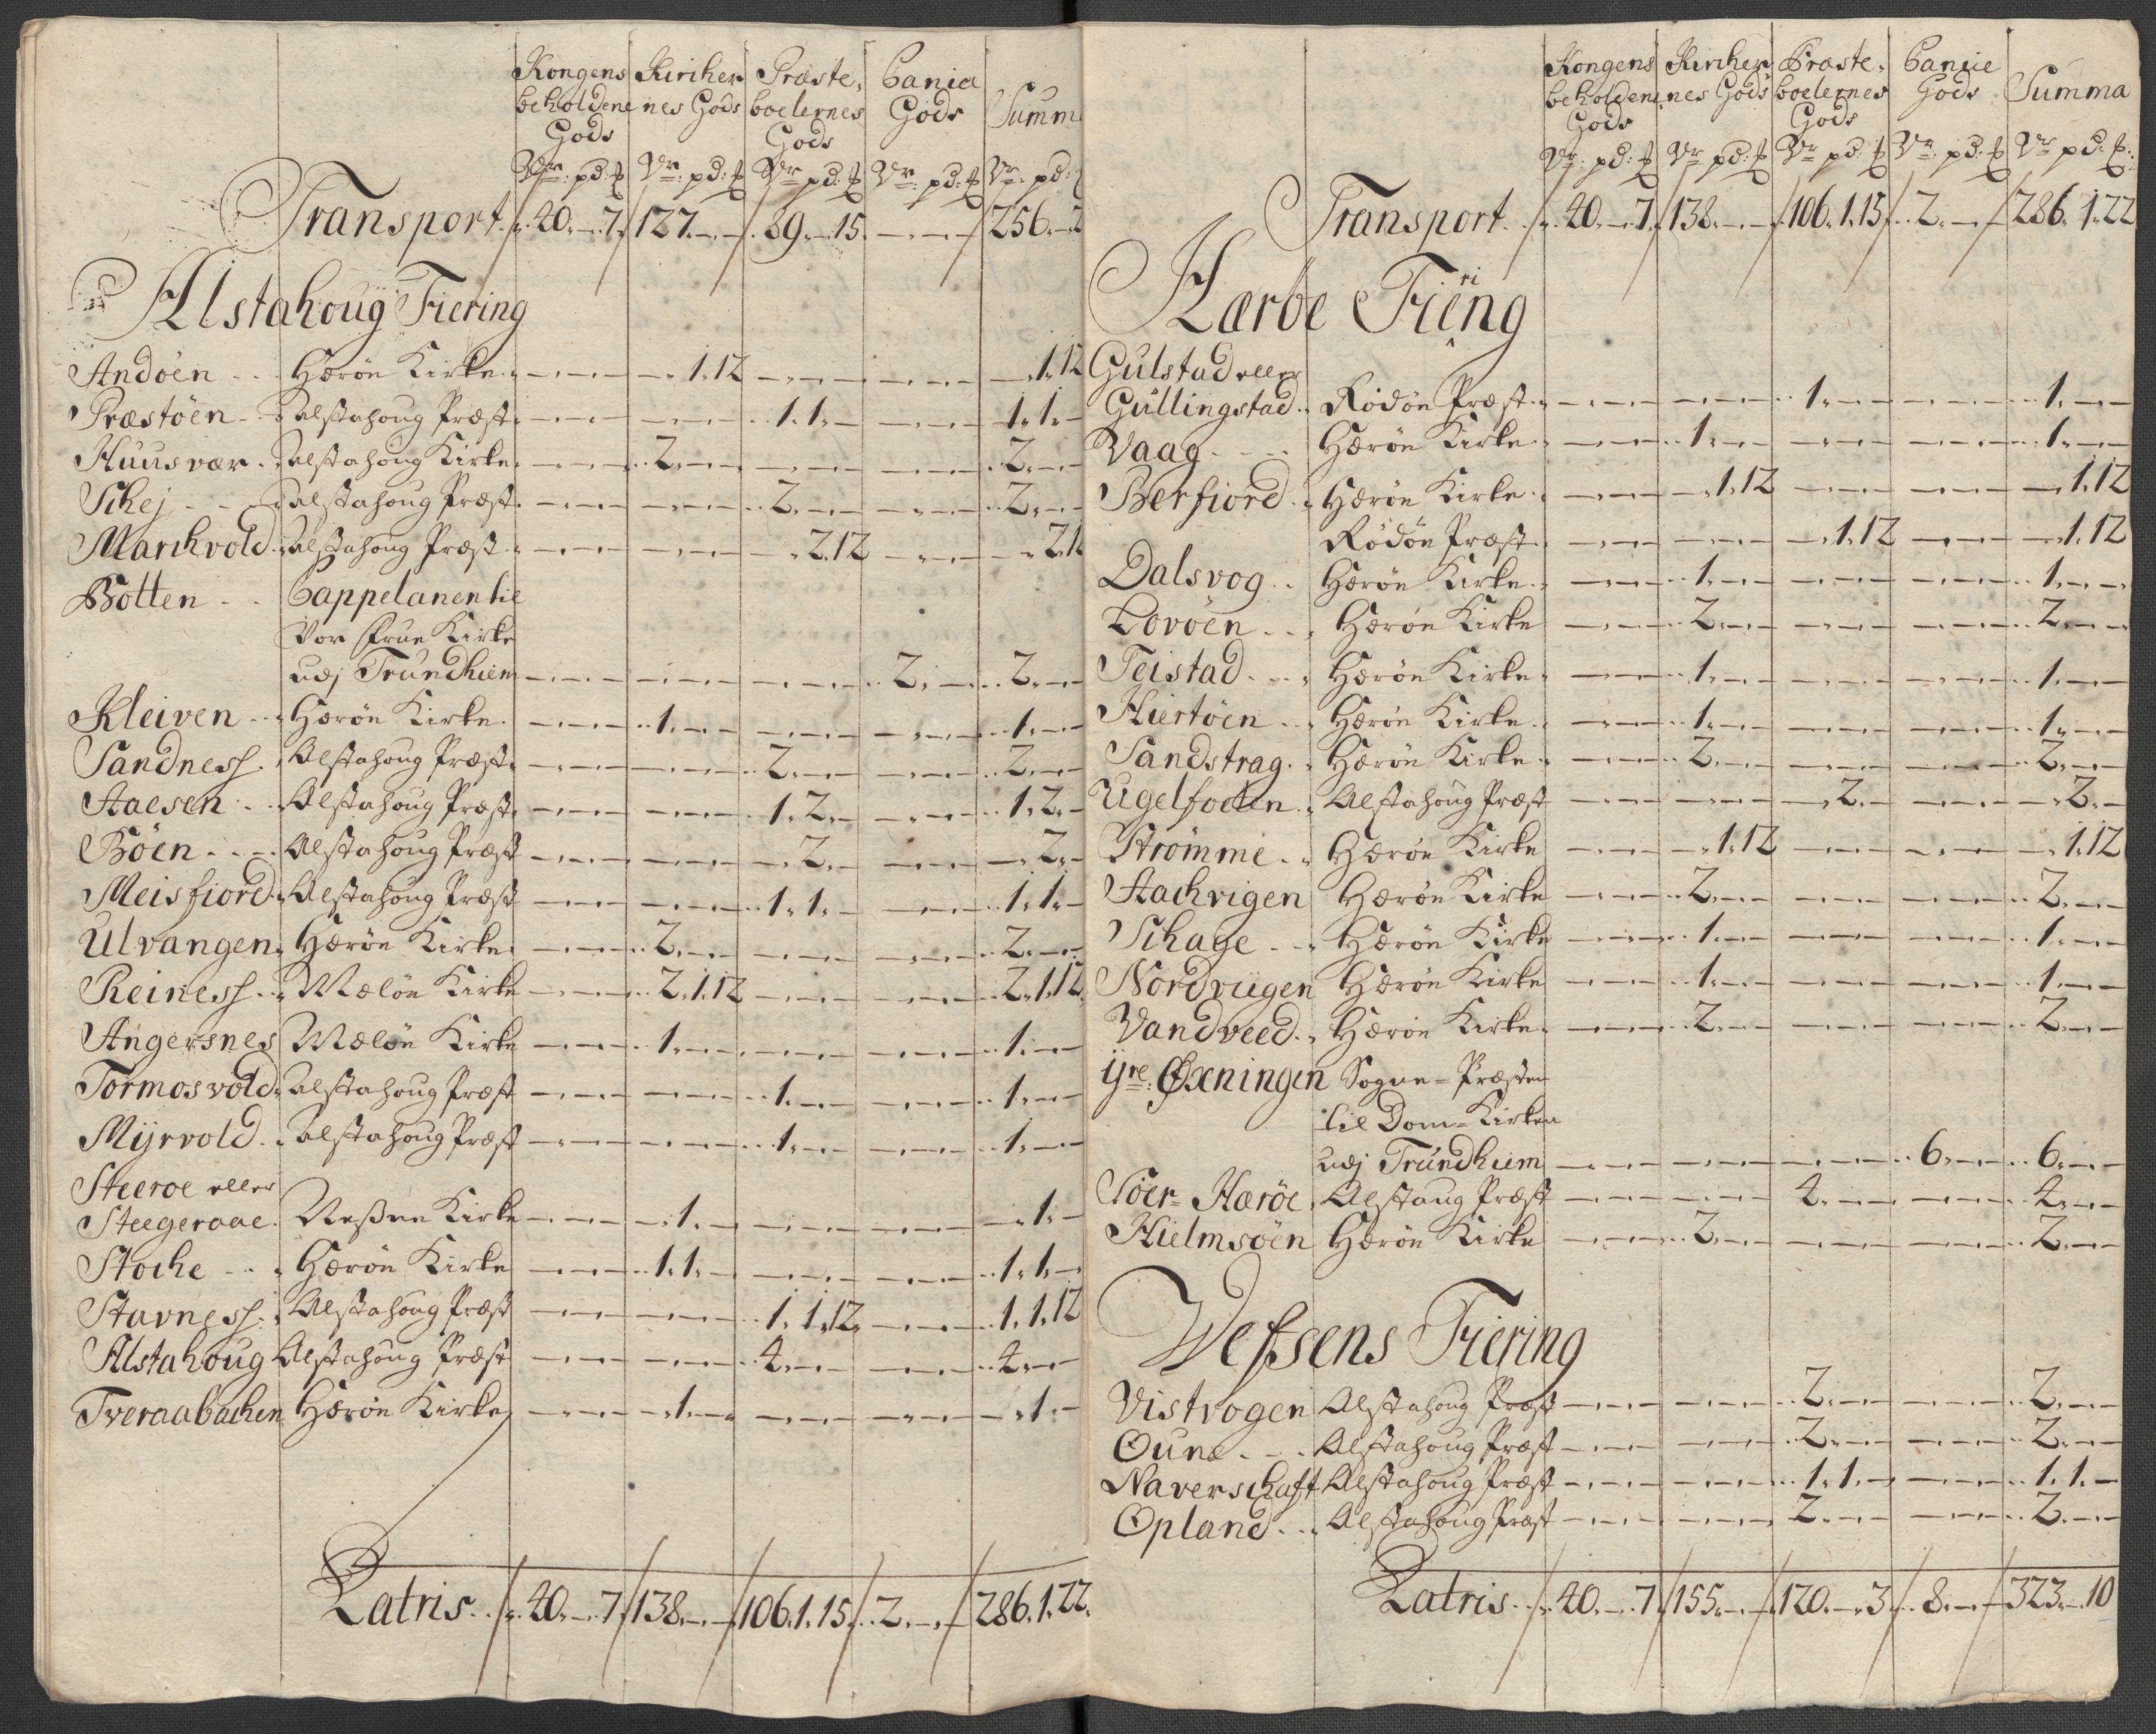 Kongens Kircher Præste, Cania
beholdene nes Gods boelernes Gods Summ
Gods Gods
Vr: pd: Vr: pd: Vr pd: Vr: pd: Vr. pd:
Transport. 40. — 7. 127. — — 89. — 15. — — — 256. — 2
Alstahoug Fiering
Andöen Herön Kirke — — — — 1. 12 — — — — — — — 1. 12
Præstöen Alstahoug Præst — — — — — — 1. 1. — — — — 1. 1. —
Huusvær Alstahoug Kirke — — — 2. — — — — — — — — 2. — —
Schej Alstahoug Præst — — — — — — 2. — — — — — 2. — —
Marchvold Alstahoug Præst — — — — — — — 2. 12 — — — — 2. 12
Botten Cappelanen til
Vor frue Kirke
udj Trundhiem — — — — — — — — — 2. — — 2. — —
Kleiven Herön Kirke — — — 1. — — — — — — — — 1. — —
Sandness Alstahoug Præst — — — — — — 2. — — — — — 2. — —
Aaesen Alstahoug Præst — — — — — — 1. 2. — — — — 1. 2. —
Böen Alstahoug Præst — — — — — — — 2. — — — — — 2. —
Meisfiord Alstahoug Præst — — — — — — 1. 1. — — — — 1. 1. —
Ulvangen Herön Kirke — — — 2. — — — — — — — — 2. — —
Reiness Mælön Kirke — — — 2. 1. 12 — — — — — — 2. 1. 12
Angersnes Mælön Kirke — — — 1. — — — — — — — — 1. — —
Tormosvold Alstahoug Præst — — — — — — 1. — — — — — 1. — —
Mÿrvold Alstahoug Præst — — — — — — 1. — — — — — 1. — —
Steeroe eller
Steegeraae Neßne Kirke — — — — 1. — — — — — — — — 1. —
Stoche Herön Kirke — — — 1. 1. — — — — — — — 1. 1. —
Stavness Alstahoug Præst — — — — — — 1. 1. 12 — — — 1. 1. 12
Alstahoug Alstahoug Præst — — — — — — 4. — — — — — 4. — —
Tveraabachen Herön Kirke — — — — 1. — — — — — — — — 1. —
Latris 40. — 7. 138. — — 106. 1. 15. 2. — — 286. 1. 22.
Kongens Kircher Præste, Canie
beholdene nes Gods boelernes Gods Summa
Gods Gods
Vr: pd: Vr pd: Vr pd: Vr: pd: Vr pd:
Transport. 40. — 7. 138. — — 106. 1. 15. 2. — — 286. 1. 22
Hæröe Fiering
Gulstad eller
Gullingstad Rödön Præst — — — — — — 1. — — — — — 1. — —
Vaag Herön Kirke — — — 1. — — — — — — — — 1. — —
Berfiord Herön Kirke — — — — 1. 12 — — — — — — — 1. 12
Rödön Præst — — — — — — — 1. 12 — — — — 1. 12
Dalsvog Herön Kirke — — — 1. — — — — — — — — 1. — —
Lovöen Herön Kirke — — — 2. — — — — — — — — 2. — —
Teistad Herön Kirke — — — 1. — — — — — — — — 1. — —
Hiertöen Herön Kirke — — — 1. — — — — — — — — 1. — —
Sandstrag Herön Kirke — — — 2. — — — — — — — — 2. — —
Ugelfoden Alstahoug Præst — — — — — — — 2. — — — — — 2. —
Strömme Herön Kirke — — — — 1. 12 — — — — — — — 1. 12
Aachvigen Herön Kirke — — — 2. — — — — — — — — 2. — —
Schage Herön Kirke — — — 1. — — — — — — — — 1. — —
Nordviigen Herön Kirke — — — 1. — — — — — — — — 1. — —
Vandveed Herön Kirke — — — 2. — — — — — — — — 2. — —
ÿre: Øxningen Sogne-Præsten
til Dom-Kirken
udj Trundhiem — — — — — — — — — 6. — — 6. — —
Söer-Heröe Alstaug Præst — — — — — — 4. — — — — — 4. — —
Hielmsöen Herön Kirke — — — 2. — — — — — — — — 2. — —
Wefsens Fiering
Vistvogen Alstahoug Præst — — — — — — 2. — — — — — 2. — —
Oune Alstahoug Præst — — — — — — 2. — — — — — 2. — —
Naverschaft Alstahoug Præst — — — — — — 1. 1. — — — — 1. 1. —
Opland Alstahoug Præst — — — — — — 2. — — — — — 2. — —
Latris 40. — 7. 155. — — 120. — 3. 8. — — 323. — 10